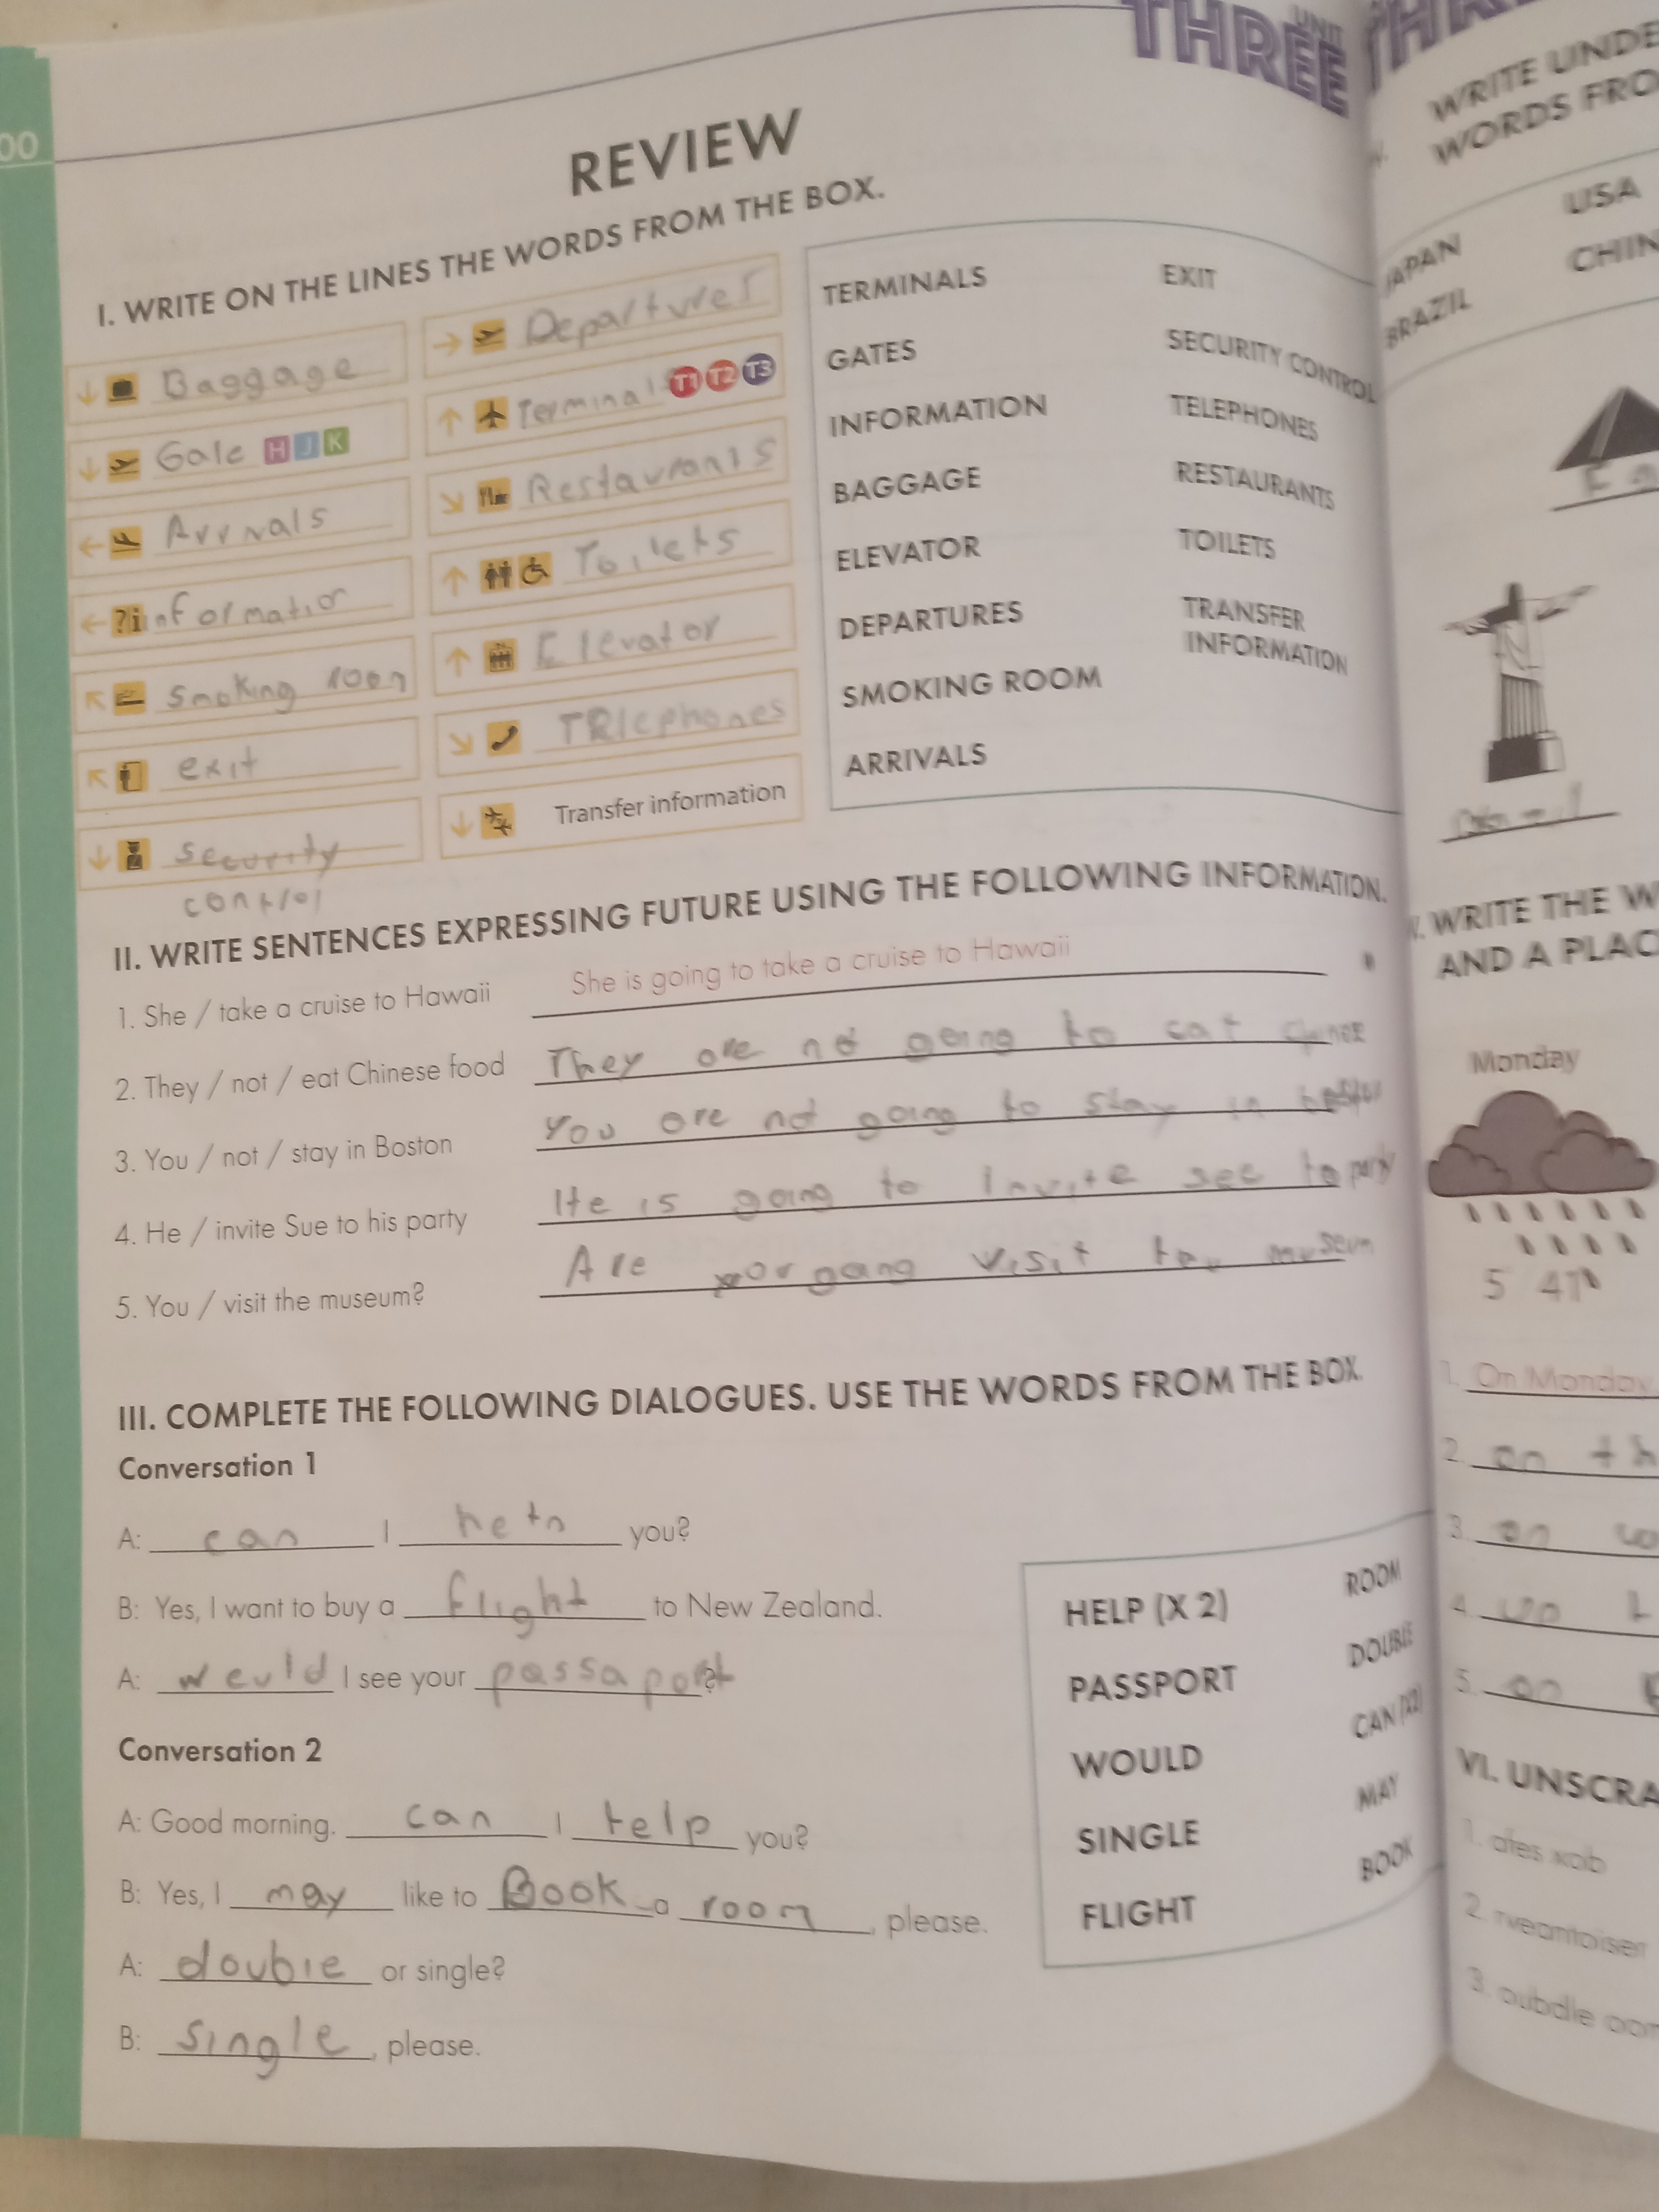 00
UNIT
THREE
REVIEW
I. WRITE ON THE LINES THE WORDS FROM THE BOX.
Baggage
Gate H J K
Arrivals
?i information
smoking room
exit
security
control
Departures
Terminal T1 T2 T3
Restaurants
Toilets
Elevator
TRlephones
Transfer information
TERMINALS
GATES
INFORMATION
BAGGAGE
ELEVATOR
DEPARTURES
SMOKING ROOM
ARRIVALS
EXIT
SECURITY CONTROL
TELEPHONES
RESTAURANTS
TOILETS
TRANSFER
INFORMATION
II. WRITE SENTENCES EXPRESSING FUTURE USING THE FOLLOWING INFORMATION.
1. She / take a cruise to Hawaii She is going to take a cruise to Hawaii
2. They / not / eat Chinese food They are not going to eat
3. You / not / stay in Boston You are not going to stay in
4. He / invite Sue to his party He is going to invite see to party
5. You / visit the museum? Are going visit museum
III. COMPLETE THE FOLLOWING DIALOGUES. USE THE WORDS FROM THE BOX.
Conversation 1
A: can I you?
B: Yes, I want to buy a flight to New Zealand.
A: would I see your passaport?
Conversation 2
A: Good morning. can I help you?
B: Yes, I may like to Book a room, please.
A: double or single?
B: single, please.
HELP (X 2)
PASSPORT
WOULD
SINGLE
FLIGHT
ROOM
DOUBLE
CAN (X2)
MAY
BOOK
WRITE UNDE
WORDS FRO
JAPAN
USA
BRAZIL
CHIN
V. WRITE THE W
AND A PLAC
Monday
1. On Monday
2. on th
3. on
4.
5. on
VI. UNSCRA
1. afes xob
2. rveamtoiser
3. oubdle oom